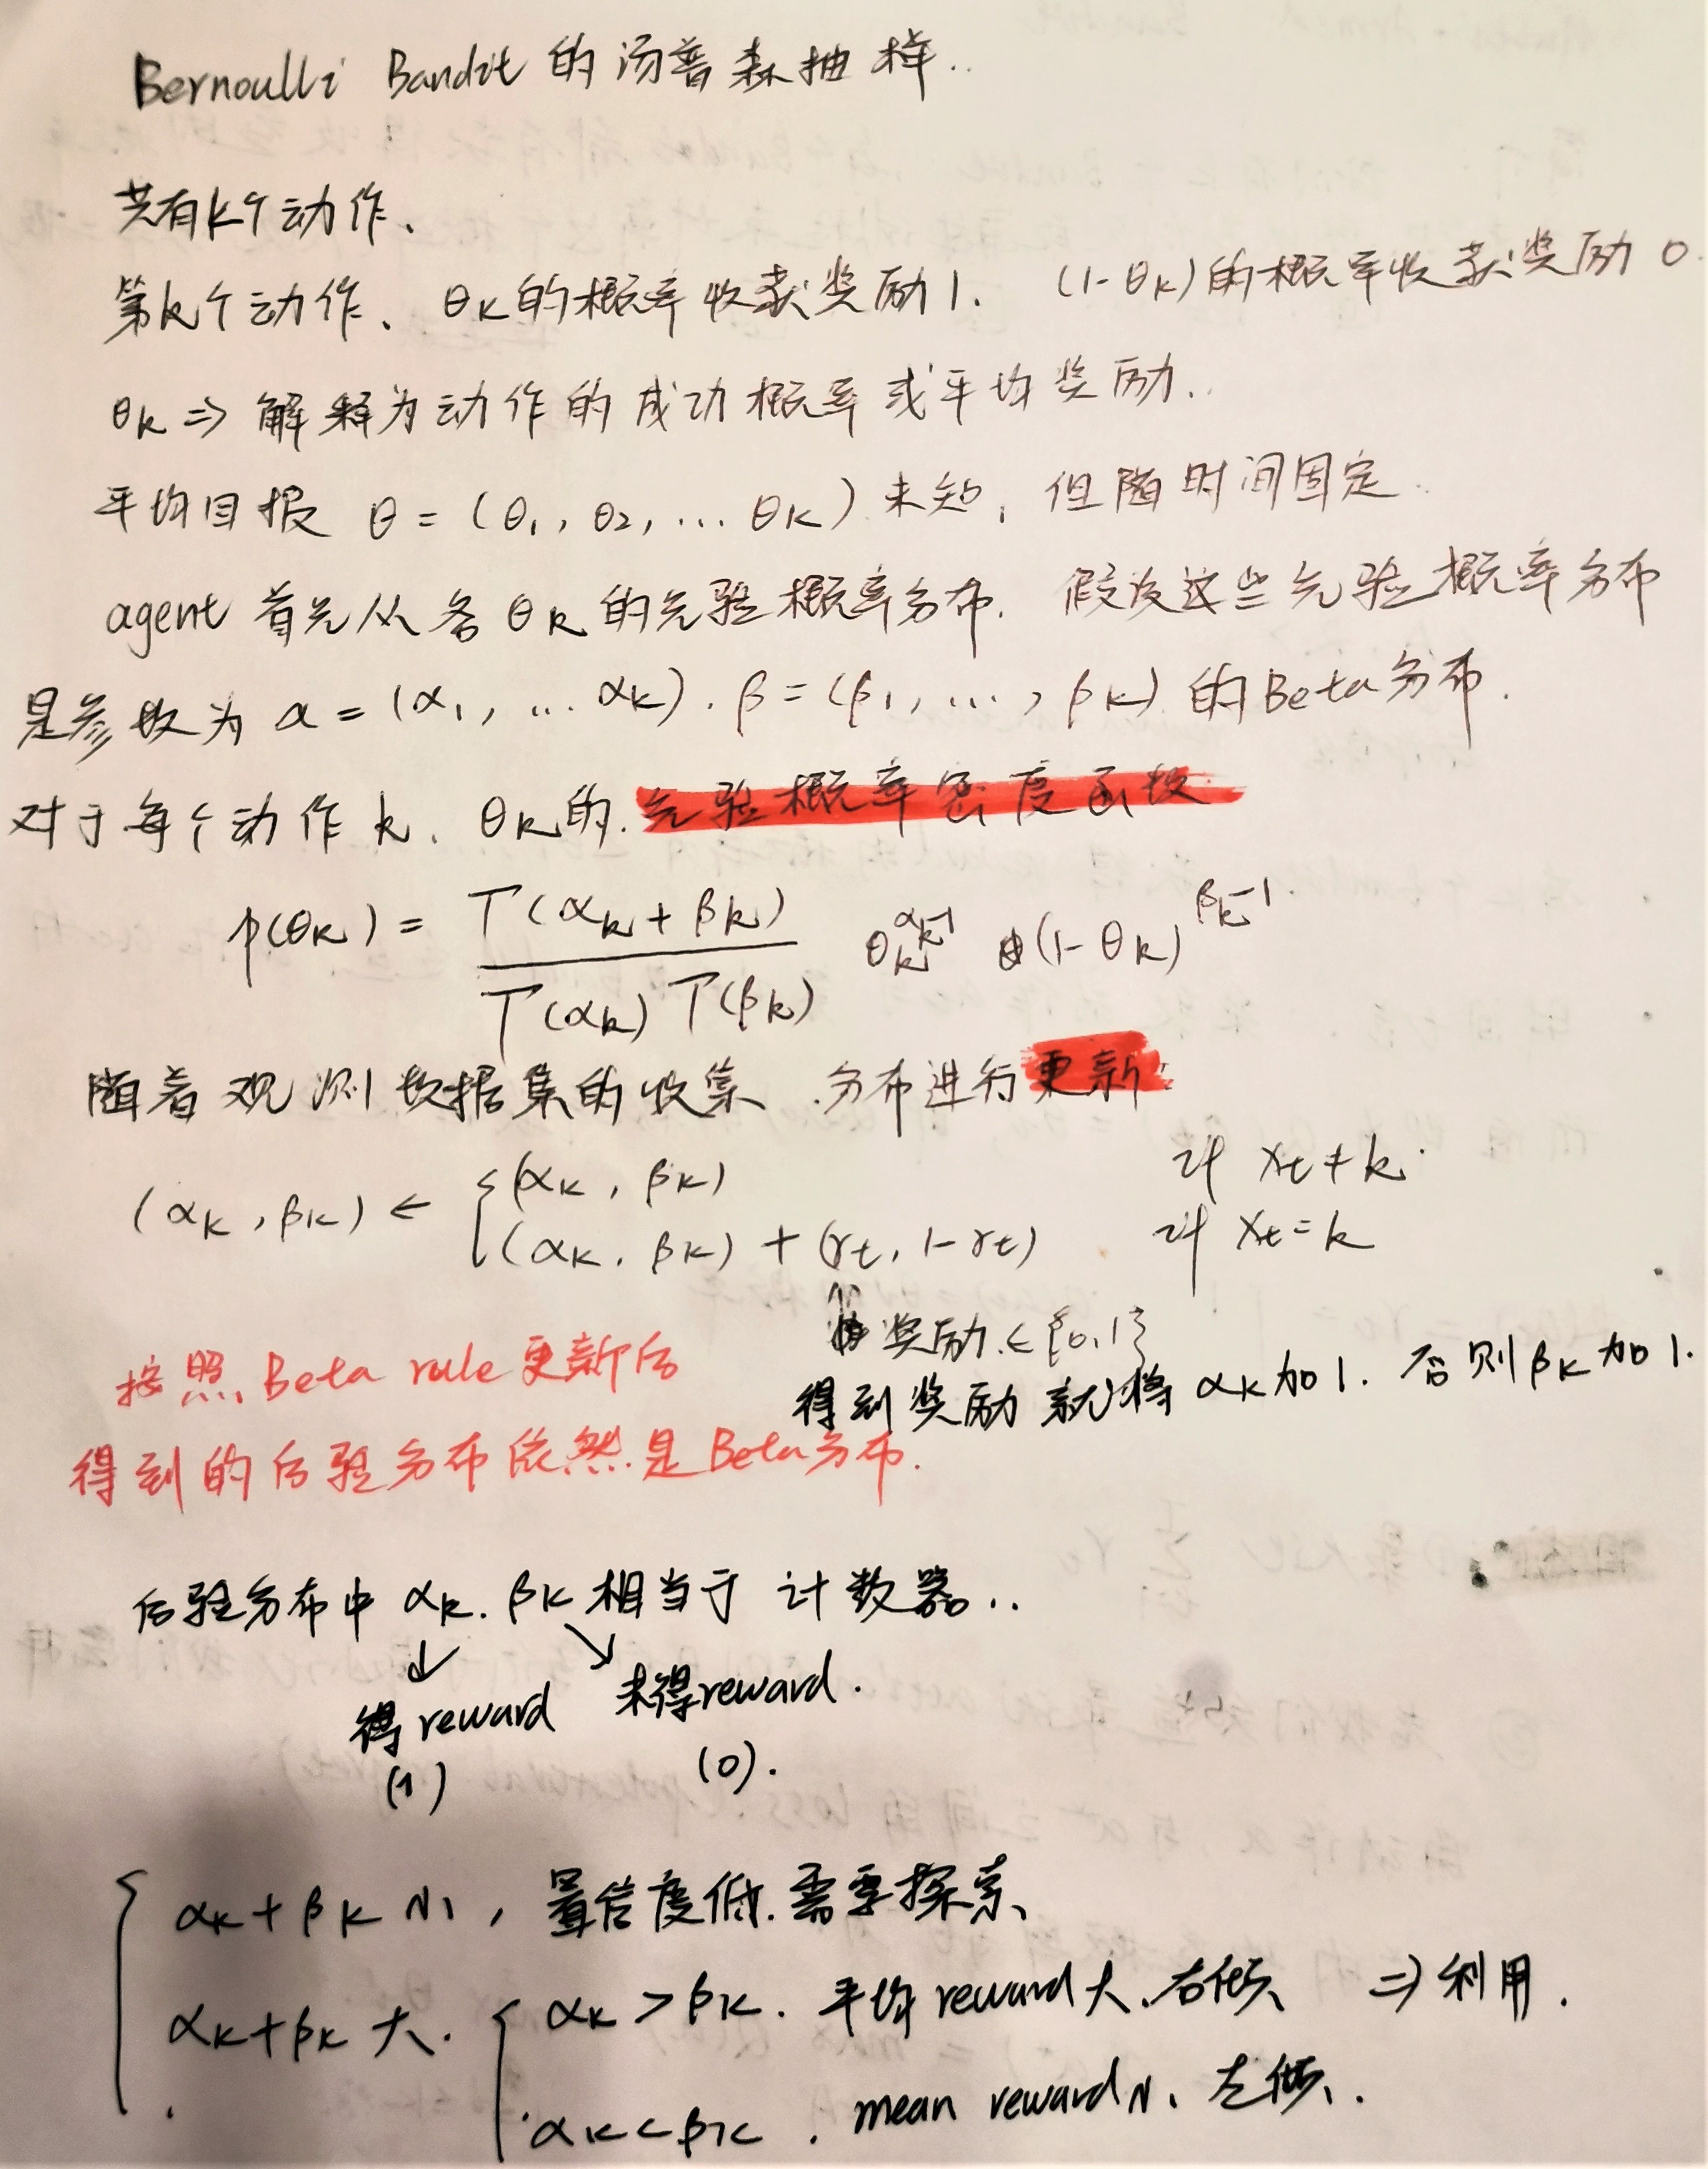 Bernoulli Bandit 的汤普森抽样..
共有K个动作、
第k个动作、θk的概率收获奖励1. (1-θk)的概率收获奖励0.
θk ⇒ 解释为动作的成功概率或平均奖励..
平均回报 θ = (θ1, θ2, ... θK) 未知, 但随时间固定..
agent 首先从各θk的先验概率分布. 假设这些先验概率分布
是参数为 α = (α1, ... αk). β = (β1, ..., βk) 的Beta分布.
对于每个动作k. θk的.先验概率密度函数
p(θk) = Γ(αk + βk) / Γ(αk) Γ(βk) θk^(αk-1) (1-θk)^(βk-1).
随着观测数据集的收集.分布进行更新:
(αk, βk) ← { (αk, βk) if xt ≠ k.
(αk, βk) + (rt, 1-rt) if xt = k
奖励.∈{0,1}
得到奖励就将αk加1. 否则βk加1.
按照Beta rule更新后
得到的后验分布依然是Beta分布.
后验分布中 αk. βk 相当于 计数器..
↓ ↘
得reward 未得reward.
(1) (0).
{ αk + βk 小, 置信度低.需要探索、
αk + βk 大. { αk > βk. 平均reward大、右倾、 ⇒ 利用.
αk < βk . mean reward小、左倾、.